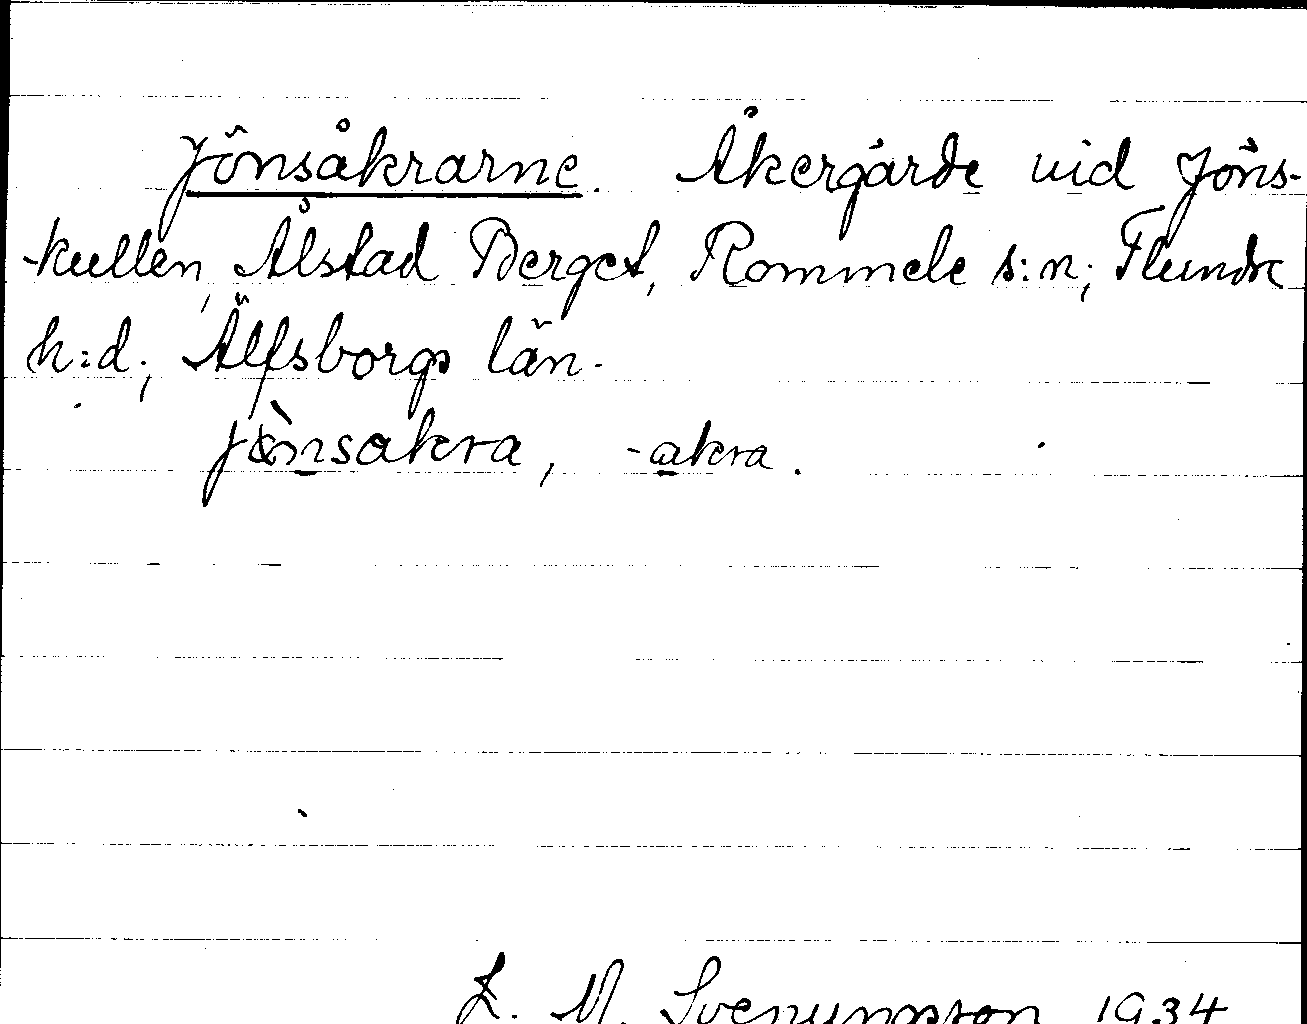 Jönsåkrarne. Åkergärde vid Jöns-
kullen, Ålstad Berget, Rommele s:n; Flundre
h:d; Älfsborgs län.
jònsakra, -akra.
L. M. Svenungsson 1934